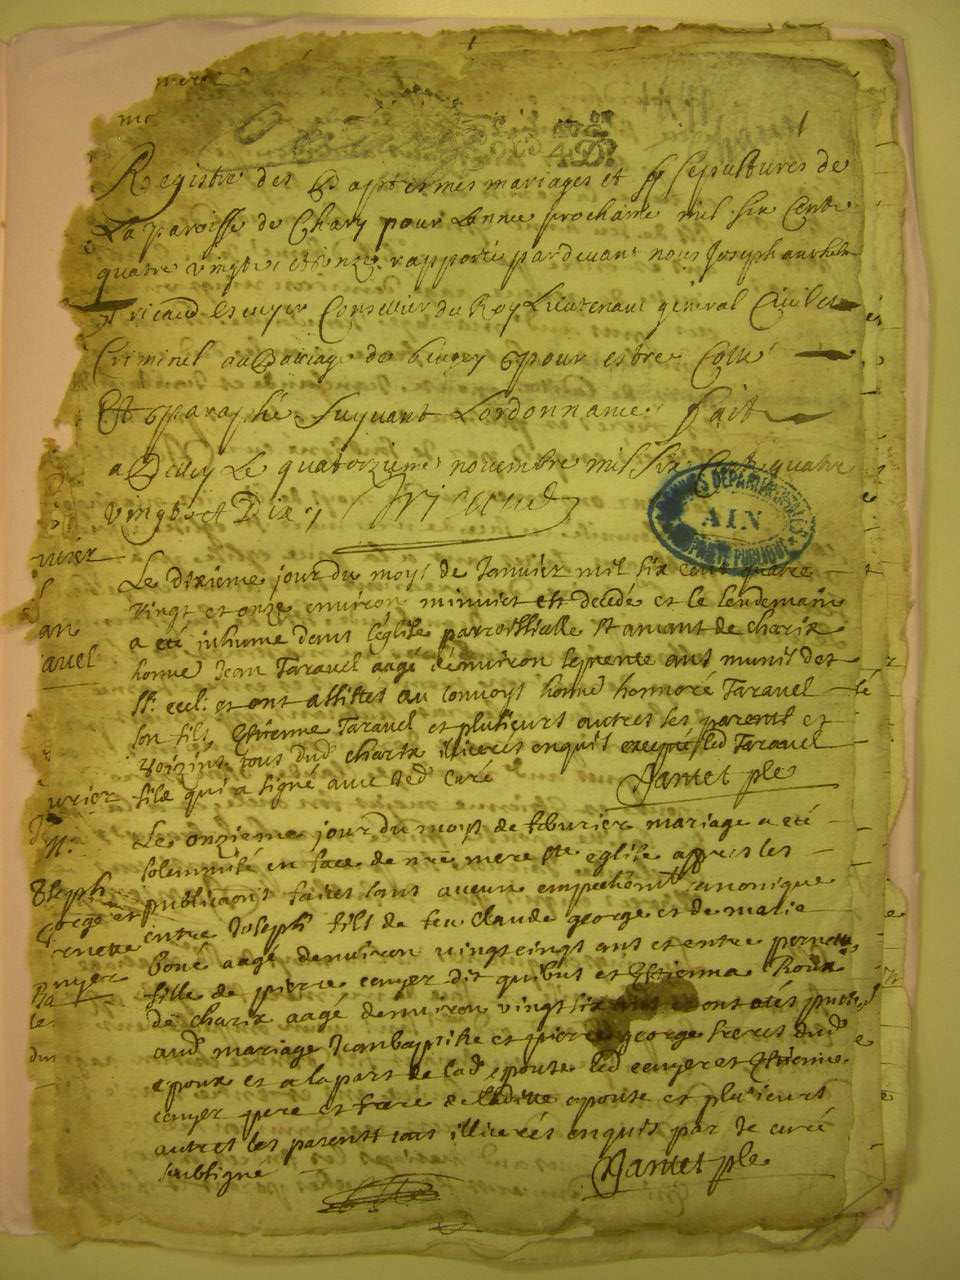 Registre des Baptesmes mariages et sepultures de
La paroisse de Charix pour Lannee prochaine mil six Cents
quatre vingts et onze rapporté pardevant nous Joseph anthelme
Tricaud Escuyer Conseiller du Roy Lieutenant general Civil et
Criminel au Bailliage de beugey pour estre Cotté
Et paraphé suyuant Lordonnance fait
a Belley Le quatorzieme nouembre mil six Cents quatre
vingts et Dix
Tricaud
ARCHIVES DEPARTEMENTALES
AIN
Le dixieme jour du moys de Januier mil six cent quatre
vingt et onze enuiron minuict est decedé et le lendemain
a eté inhumé dans l'eglise parroissialle st amant de charix
honne Jean Tarauel aagé denuiron septente ans munit des
st. eccl. et ont assistes au conuoys honne honnoré Tarauel
son fils, Estienne Tarauel et plusieurs autres ses parents et
voisins tous dud charix illiteres enquis excepté led Tarauel
fils qui a signé auec led curé
Jantet ptre
Le onzieme jour du moys de feburier mariage a eté
solemnisé en face de nre mere ste eglise appres les
publicaons faites sans aucun empechemt canonique
entre Joseph fils de feu claude george et de marie
boné aagé denuiron vingt cinqt ans et entre pernette
fille de pierre conyer dit quibut et Estienna Roux
de charix aagé denuiron vingt six ans et ont etés
aud mariage Jeanbaptiste et pierre george freres dud
epoux et a la part de lad epouse led conyer et Estienne
conyer pere et frere de ladite epouse et plusieurs
autres les parents tous illiterés enquis par le curé
soubsigne
Jantet ptre